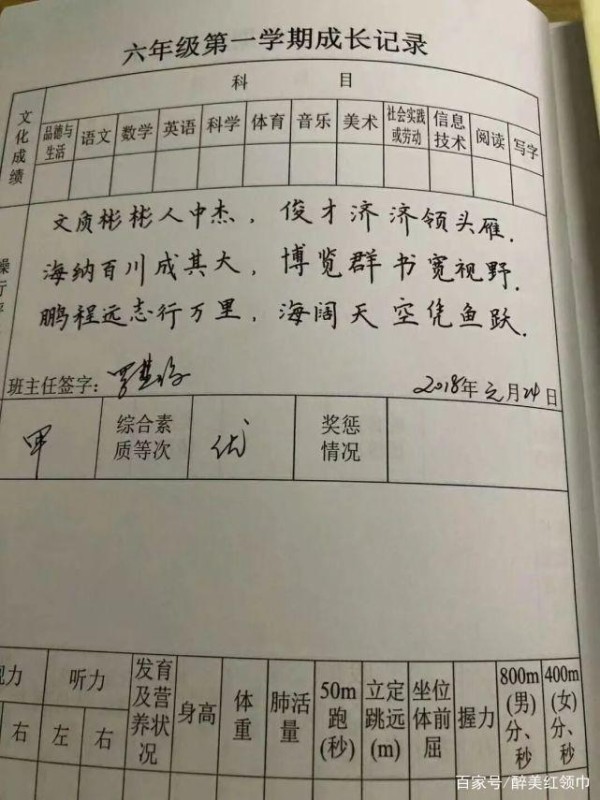 六年级第一学期成长记录
文化成绩
科 目
品德与生活 语文 数学 英语 科学 体育 音乐 美术 社会实践或劳动 信息技术 阅读 写字
文质彬彬人中杰，俊才济济领头雁.
海纳百川成其大，博览群书宽视野.
鹏程远志行万里，海阔天空凭鱼跃.
班主任签字：
2018年元月24日
甲 综合素质等次 优 奖惩情况
力 听力 发育及营养状况 身高 体重 肺活量 50m跑(秒) 立定跳远(m) 坐位体前屈 握力 800m(男)分、秒 400m(女)分、秒
右 左 右
百家号/醉美红领巾